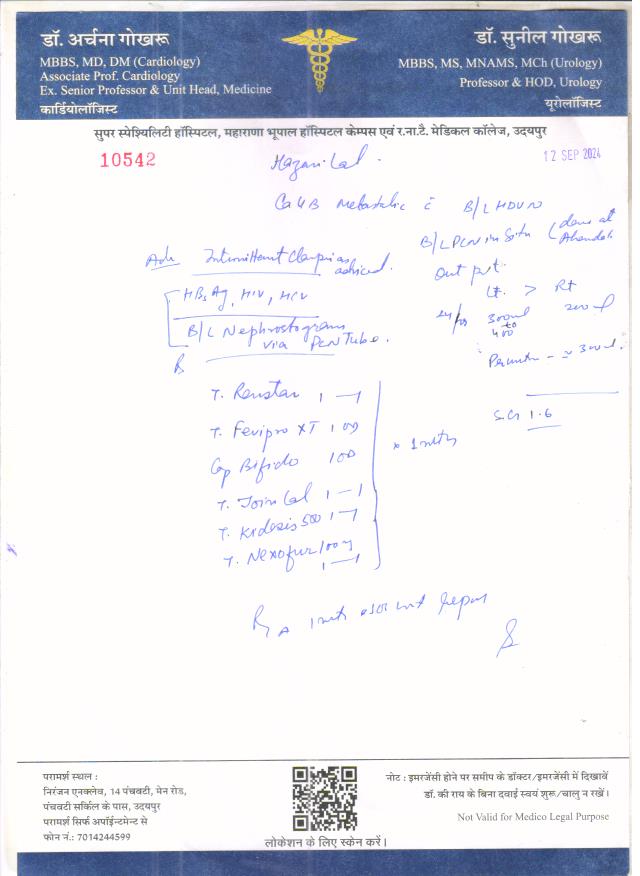 डॉ. अर्चना गोखरू
MBBS, MD, DM (Cardiology)
Associate Prof. Cardiology
Ex. Senior Professor & Unit Head, Medicine
कार्डियोलॉजिस्ट
डॉ. सुनील गोखरू
MBBS, MS, MNAMS, MCh (Urology)
Professor & HOD, Urology
यूरोलॉजिस्ट
सुपर स्पेश्यिलिटी हॉस्पिटल, महाराणा भूपाल हॉस्पिटल केम्पस एवं र.ना.टै. मेडिकल कॉलेज, उदयपुर
10542
12 SEP 2024
Ca UB Metastatic c B/L HDUN
B/L PCN in Situ (done at
Output
Lt. > Rt
300ml 200ml
to
400
S.Cr 1.6
Adv Intermittent Clamping as
adviced.
HBsAg, HIV, HCV
B/L Nephrostogram
via PCN Tube.
T. Renstar 1-1
T. Fevipro XT 1 OD
Cap Bifido 1 OD
T. 1-1
T. 500 1-1
T. 100
1-1
x 1 mth
परामर्श स्थल :
निरंजन एनक्लेव, 14 पंचवटी, मेन रोड,
पंचवटी सर्किल के पास, उदयपुर
परामर्श सिर्फ अपॉईन्टमेन्ट से
फोन नं.: 7014244599
लोकेशन के लिए स्केन करें।
नोट : इमरजेंसी होने पर समीप के डॉक्टर/इमरजेंसी में दिखावें
डॉ. की राय के बिना दवाई स्वयं शुरू/चालु न रखें।
Not Valid for Medico Legal Purpose